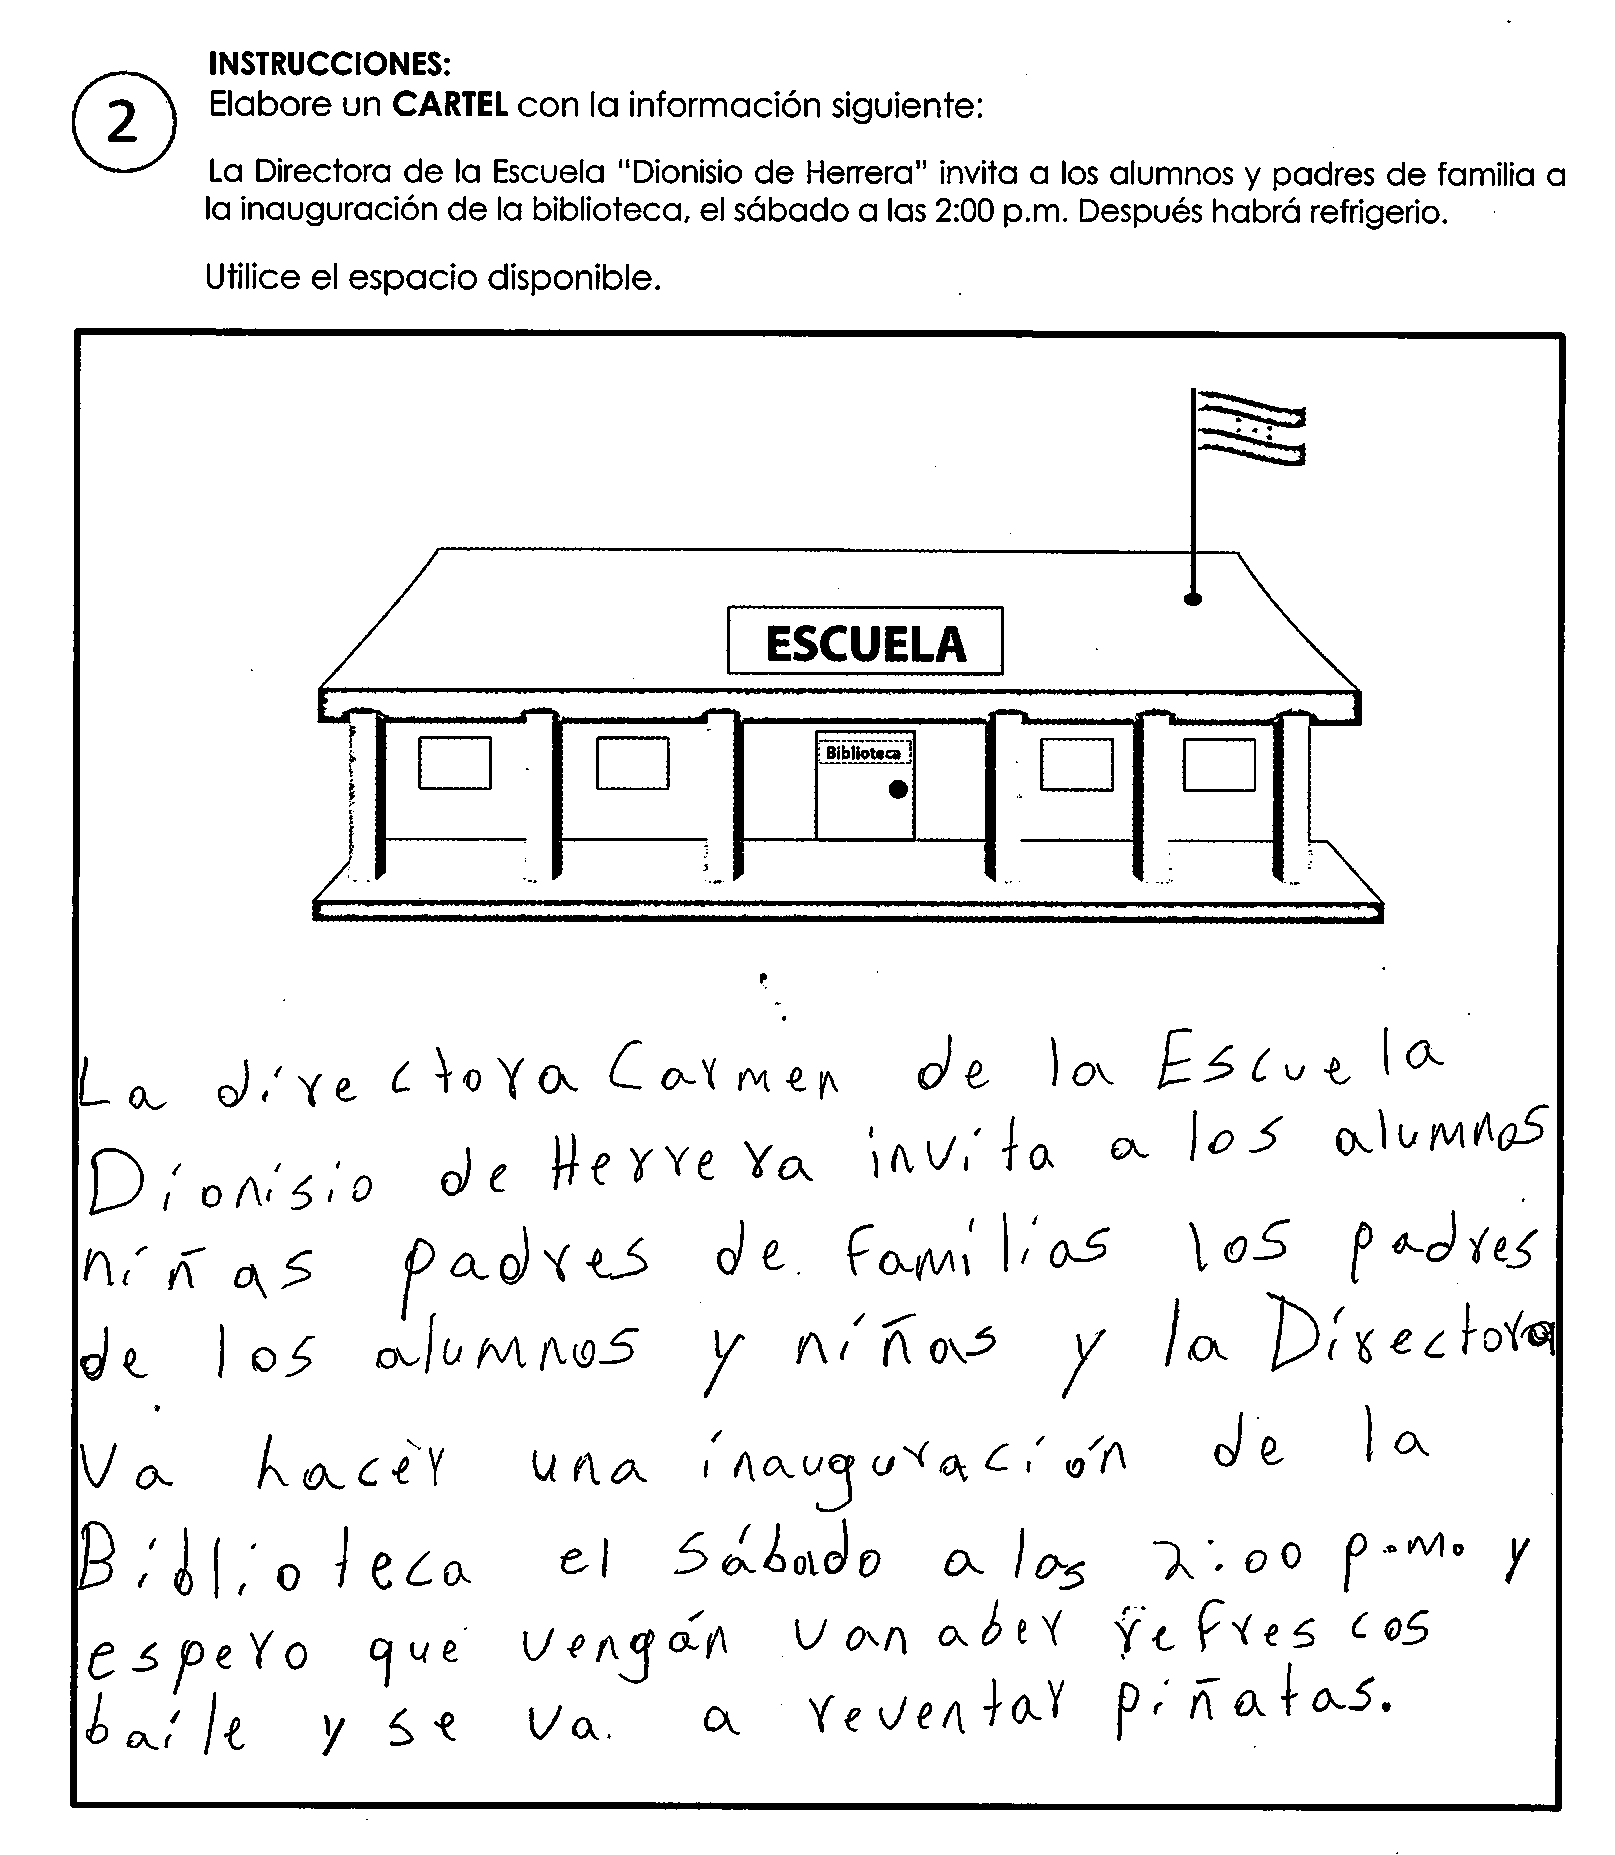 INSTRUCCIONES:
2
Elabore un CARTEL con la información siguiente:
La Directora de la Escuela "Dionisio de Herrera" invita a los alumnos y padres de familia a
la inauguración de la biblioteca, el sábado a las 2:00 p.m. Después habrá refrigerio.
Utilice el espacio disponible.
ESCUELA
Biblioteca
La directora Carmen de la Escuela
Dionisio de Herrera invita a los alumnos
niñas padres de familias los padres
de los alumnos y niñas y la Directora
va hacer una inauguración de la
Biblioteca el sábado a las 2:00 p.m. y
espero que vengán van aber refrescos
baile y se va a reventar piñatas.